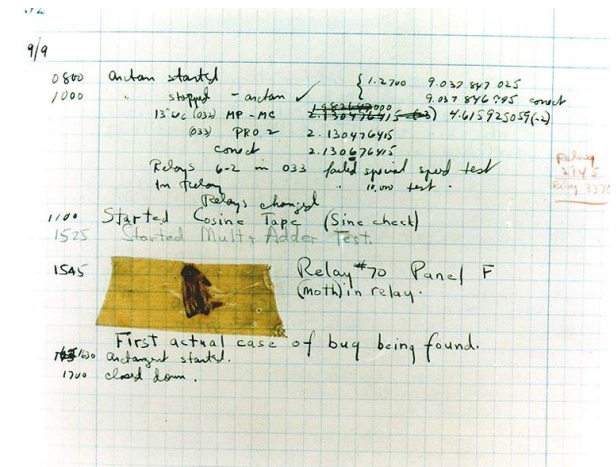 9/9
0800 Antan started { 1.2700 9.037 847 025
1000 " stopped - antan ✓ 9.037 846 995 conect
13"uc (032) MP - MC 2.130476415 (-3) 4.615925059(-2)
(033) PRO 2 2.130476415
conect 2.130676415
Relays 6-2 in 033 failed special speed test
In Relay " 10,000 test .
Relays changed
Relay
3145
Relay 3370
1100 Started Cosine Tape (Sine check)
1525 Started Mult+ Adder Test.
1545 Relay #70 Panel F
(moth) in relay.
First actual case of bug being found.
1630 Antangent started.
1700 closed down .